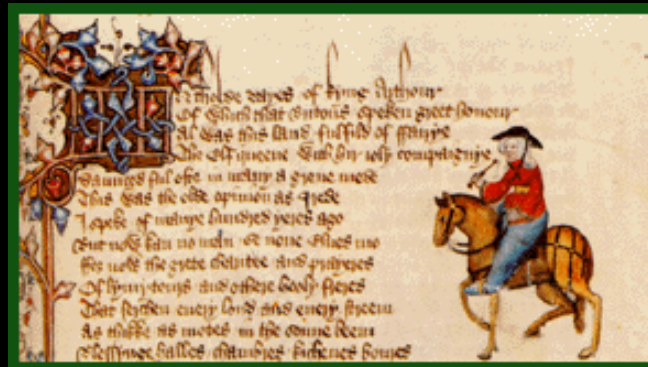 In tholde dayes of kyng Arthour
Of which that Britons speken greet honour
Al was this land fulfild of ffairye
The Elf queene with hir ioly compaignye
Daunced ful ofte in many a grene mede
This was the olde opinion as I rede
I speke of manye hundred yeres ago
But now kan no man se none Elues mo
ffor now the grete charitee and prayeres
Of lymytours and othere hooly freres
That serchen euery lond and euery streem
As thikke as motes in the sonne beem
Blessynge halles chambres kichenes boures